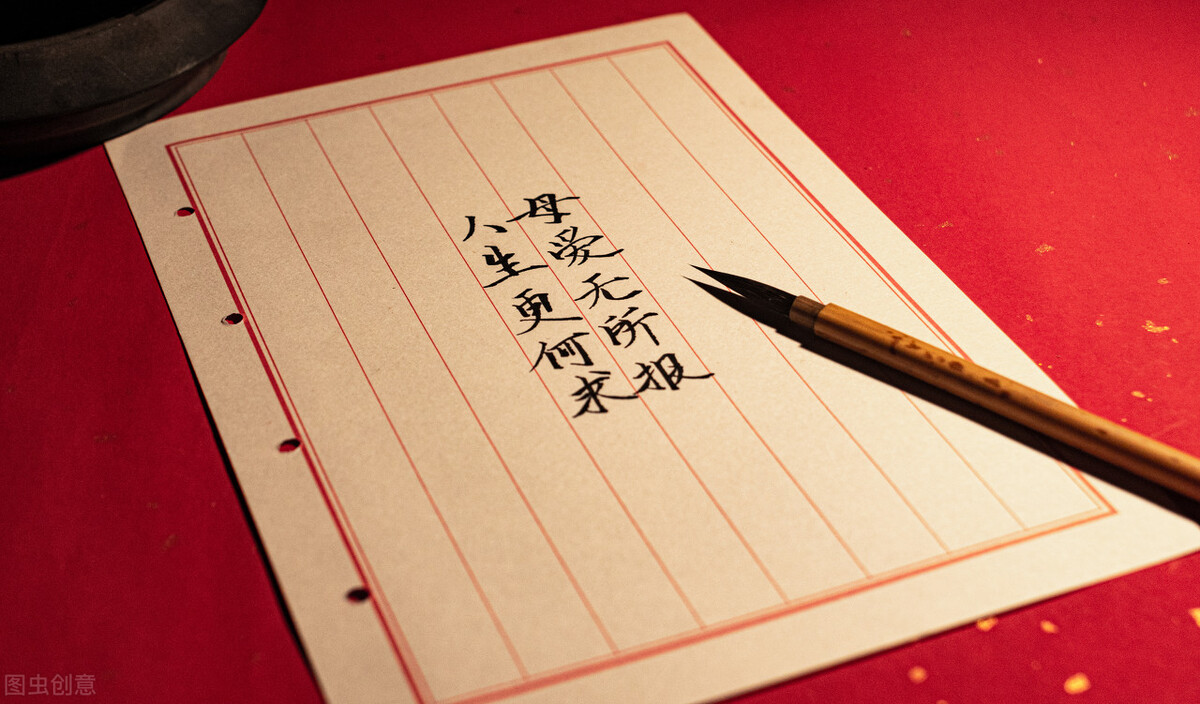 母爱无所报
人生更何求
图虫创意